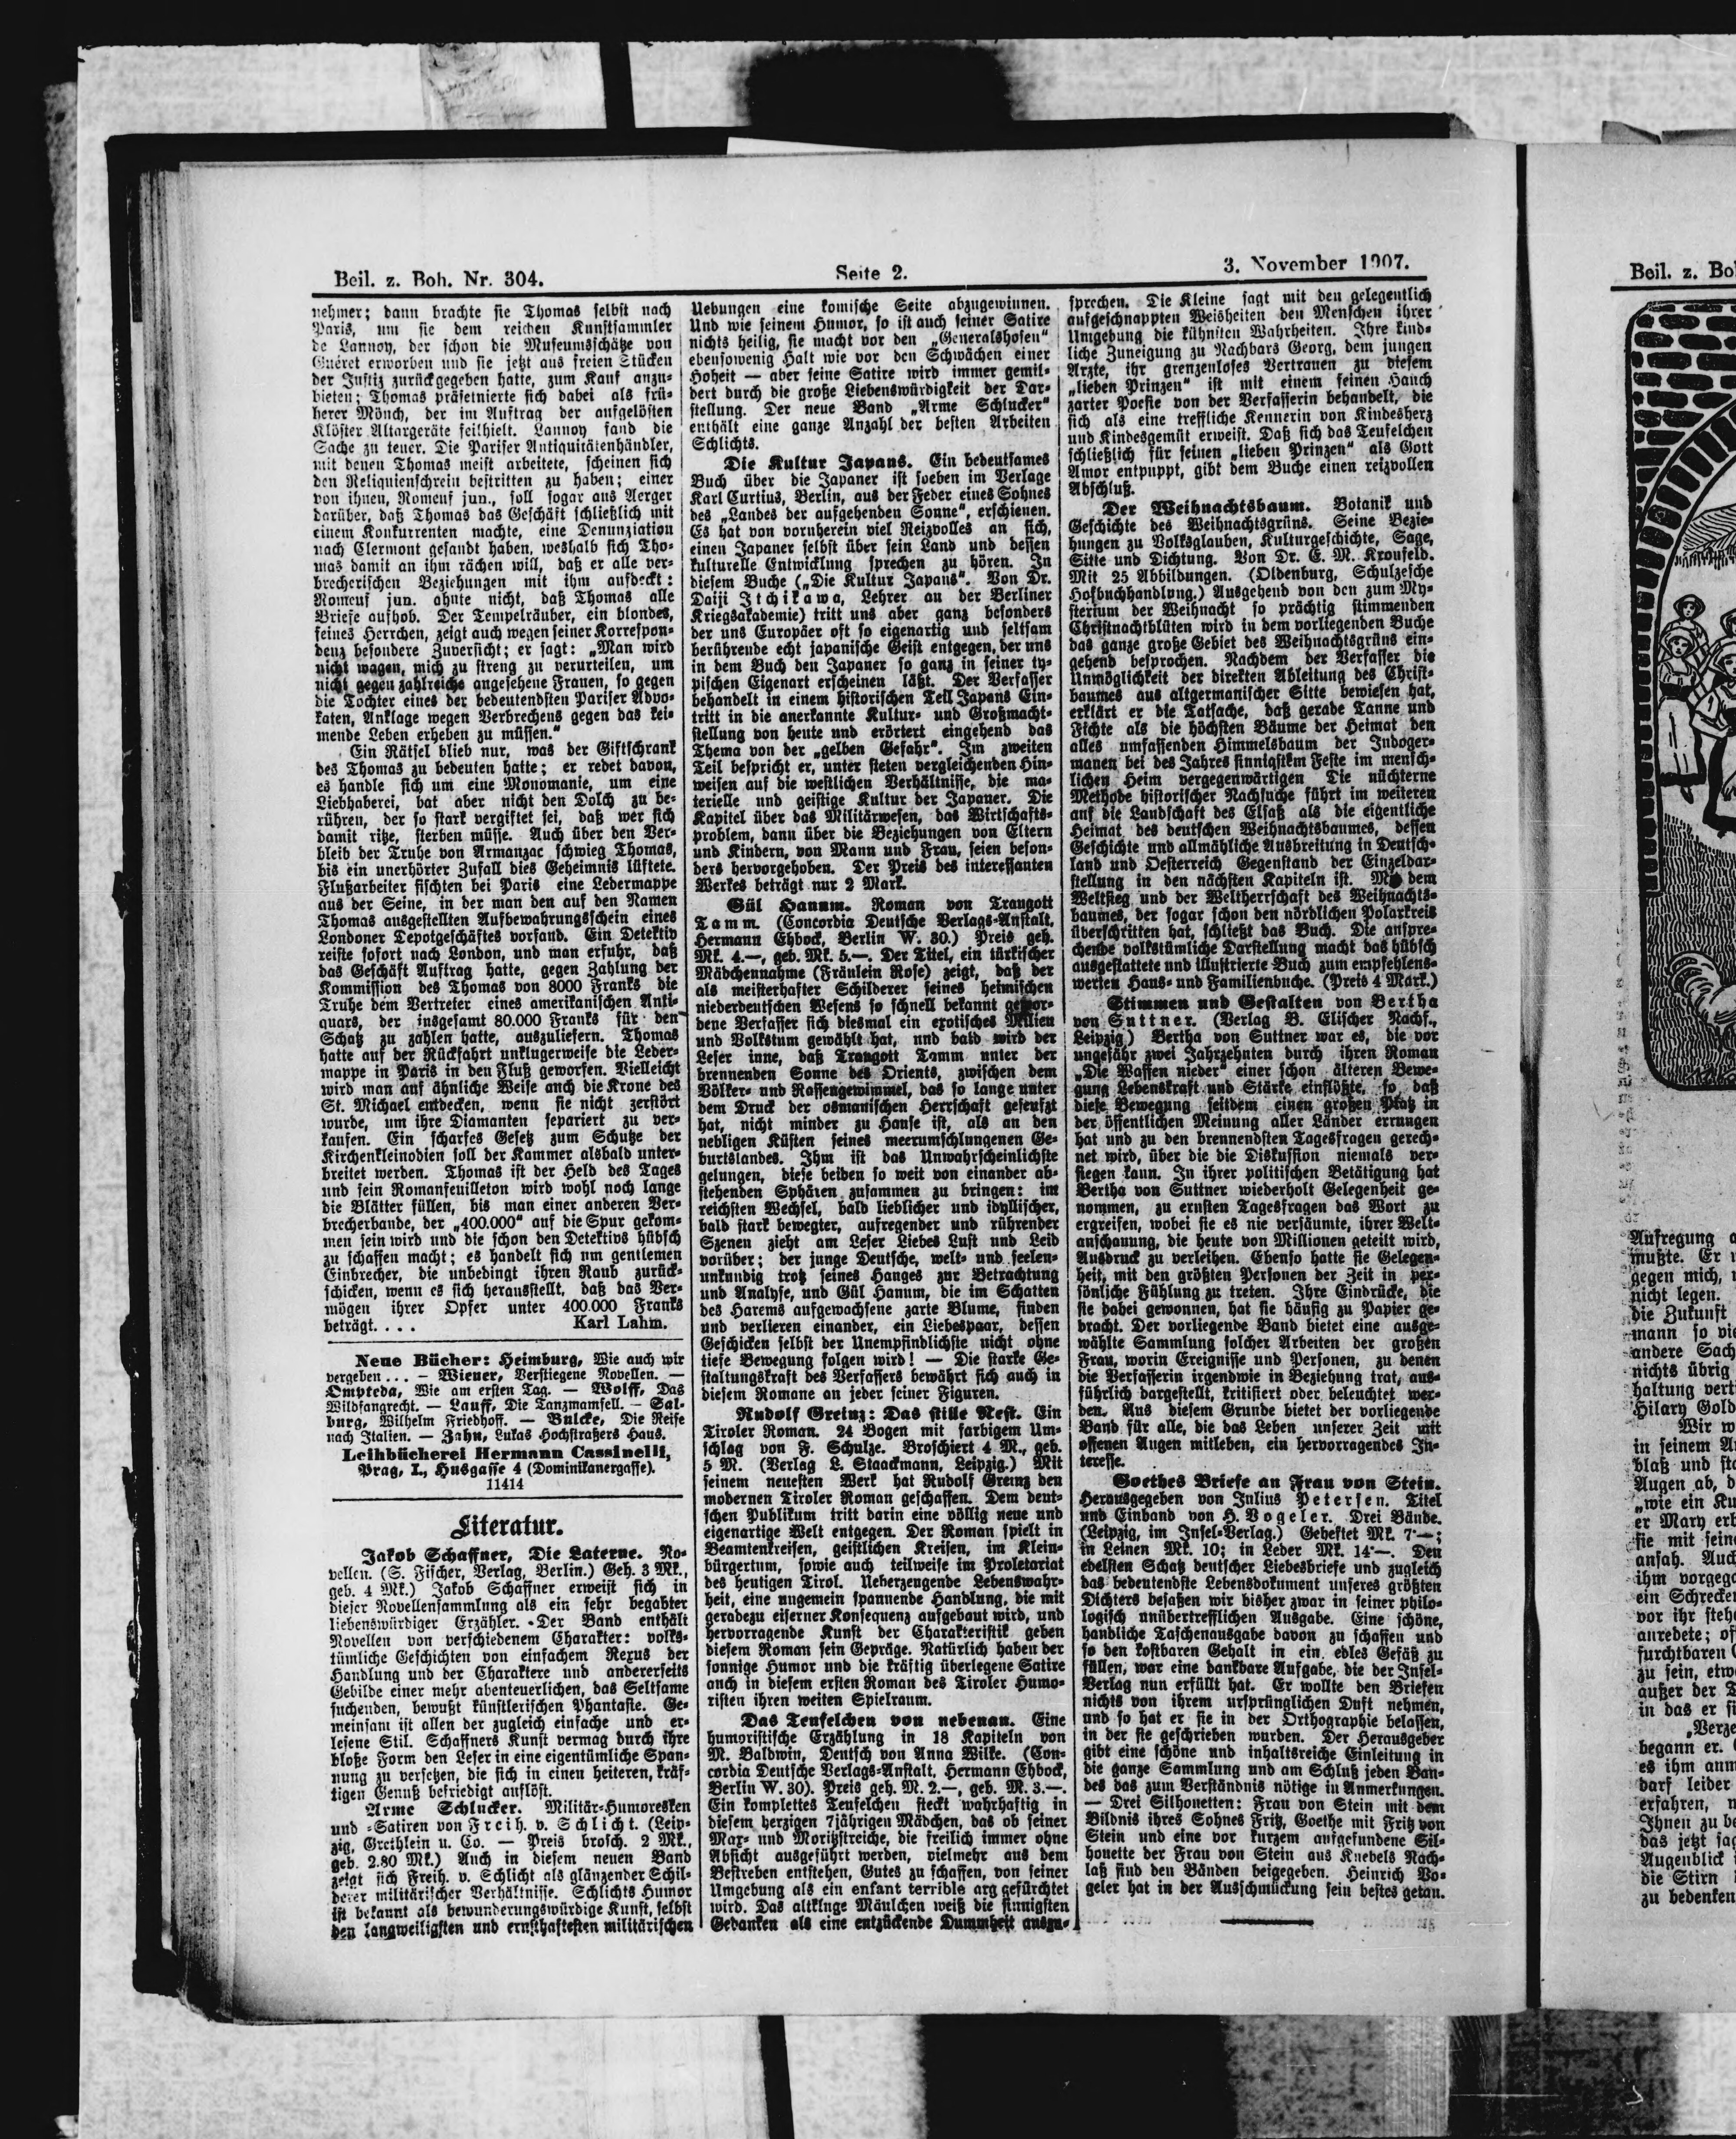 Beil. z. Boh. Nr. 304.
Seite 2.
3. November 1907.
nehmer; dann brachte sie Thomas selbst nach
Paris, um sie dem reichen Kunstsammler
de Lannoy, der schon die Museumsschätze von
Guéret erworben und sie jetzt aus freien Stücken
der Justiz zurückgegeben hatte, zum Kauf anzu-
bieten; Thomas präsetnierte sich dabei als frü-
herer Mönch, der im Auftrag der aufgelösten
Klöster Altargeräte feilhielt. Lannoy fand die
Sache zu teuer. Die Pariser Antiquitätenhändler,
mit denen Thomas meist arbeitete, scheinen sich
den Reliquienschrein bestritten zu haben; einer
von ihnen, Romeuf jun., soll sogar aus Aerger
darüber, daß Thomas das Geschäft schließlich mit
einem Konkurrenten machte, eine Denunziation
nach Clermont gesandt haben, weshalb sich Tho-
mas damit an ihm rächen will, daß er alle ver-
brecherischen Beziehungen mit ihm aufdeckt:
Romeuf jun. ahnte nicht, daß Thomas alle
Briefe aufhob. Der Tempelräuber, ein blondes,
feines Herrchen, zeigt auch wegen seiner Korrespon-
denz besondere Zuversicht; er sagt: „Man wird
nicht wagen, mich zu streng zu verurteilen, um
nicht gegen zahlreiche angesehene Frauen, so gegen
die Tochter eines der bedeutendsten Pariser Advo-
katen, Anklage wegen Verbrechens gegen das kei-
mende Leben erheben zu müssen.“
Ein Rätsel blieb nur, was der Giftschrank
des Thomas zu bedeuten hatte; er redet davon,
es handle sich um eine Monomanie, um eine
Liebhaberei, bat aber nicht den Dolch zu be-
rühren, der so stark vergiftet sei, daß wer sich
damit ritze, sterben müsse. Auch über den Ver-
bleib der Truhe von Armanzac schwieg Thomas,
bis ein unerhörter Zufall dies Geheimnis lüftete.
Flußarbeiter fischten bei Paris eine Ledermappe
aus der Seine, in der man den auf den Namen
Thomas ausgestellten Aufbewahrungsschein eines
Londoner Depotgeschäftes vorfand. Ein Detektiv
reiste sofort nach London, und man erfuhr, daß
das Geschäft Auftrag hatte, gegen Zahlung der
Kommission des Thomas von 8000 Franks die
Truhe dem Vertreter eines amerikanischen Anti-
quars, der insgesamt 80.000 Franks für den
Schatz zu zahlen hatte, auszuliefern. Thomas
hatte auf der Rückfahrt unklugerweise die Leder-
mappe in Paris in den Fluß geworfen. Vielleicht
wird man auf ähnliche Weise auch die Krone des
St. Michael entdecken, wenn sie nicht zerstört
wurde, um ihre Diamanten separiert zu ver-
kaufen. Ein scharfes Gesetz zum Schutze der
Kirchenkleinodien soll der Kammer alsbald unter-
breitet werden. Thomas ist der Held des Tages
und sein Romanfeuilleton wird wohl noch lange
die Blätter füllen, bis man einer anderen Ver-
brecherbande, der „400.000“ auf die Spur gekom-
men sein wird und die schon den Detektivs hübsch
zu schaffen macht; es handelt sich um gentlemen
Einbrecher, die unbedingt ihren Raub zurück-
schicken, wenn es sich herausstellt, daß das Ver-
mögen ihrer Opfer unter 400.000 Franks
beträgt. . . . Karl Lahm.
Neue Bücher: Heimburg, Wie auch wir
vergeben . . . — Wiener, Verstiegene Novellen. —
Ompteda, Wie am ersten Tag. — Wolff, Das
Wildfangrecht. — Lauff, Die Tanzmamsell. — Sal-
burg, Wilhelm Friedhoff. — Bulcke, Die Reise
nach Italien. — Zahn, Lukas Hochstraßers Haus.
Leihbücherei Hermann Cassinelli,
Prag, I., Husgasse 4 (Dominikanergasse).
11414
Literatur.
Jakob Schaffner, Die Laterne. No-
vellen. (S. Fischer, Verlag, Berlin.) Geh. 3 Mk.,
geb. 4 Mk.) Jakob Schaffner erweist sich in
dieser Novellensammlung als ein sehr begabter
liebenswürdiger Erzähler. Der Band enthält
Novellen von verschiedenem Charakter: volks-
tümliche Geschichten von einfachem Nexus der
Handlung und der Charaktere und andererseits
Gebilde einer mehr abenteuerlichen, das Seltsame
suchenden, bewußt künstlerischen Phantasie. Ge-
meinsam ist allen der zugleich einfache und er-
lesene Stil. Schaffners Kunst vermag durch ihre
bloße Form den Leser in eine eigentümliche Span-
nung zu versetzen, die sich in einen heiteren, kräf-
tigen Genuß befriedigt auflöst.
Arme Schlucker. Militär-Humoresken
und -Satiren von Freih. v. Schlicht. (Leip-
zig, Grethlein u. Co. — Preis brosch. 2 Mk.,
geb. 2.80 Mk.) Auch in diesem neuen Band
zeigt sich Freih. v. Schlicht als glänzender Schil-
derer militärischer Verhältnisse. Schlichts Humor
ist bekannt als bewunderungswürdige Kunst, selbst
den langweiligsten und ernsthaftesten militärischen
Uebungen eine komische Seite abzugewinnen.
Und wie seinem Humor, so ist auch seiner Satire
nichts heilig, sie macht vor den „Generalshosen“
ebensowenig Halt wie vor den Schwächen einer
Hoheit — aber seine Satire wird immer gemil-
dert durch die große Liebenswürdigkeit der Dar-
stellung. Der neue Band „Arme Schlucker“
enthält eine ganze Anzahl der besten Arbeiten
Schlichts.
Die Kultur Japans. Ein bedeutsames
Buch über die Japaner ist soeben im Verlage
Karl Curtius, Berlin, aus der Feder eines Sohnes
des „Landes der aufgehenden Sonne“, erschienen.
Es hat von vornherein viel Reizvolles an sich,
einen Japaner selbst über sein Land und dessen
kulturelle Entwicklung sprechen zu hören. In
diesem Buche („Die Kultur Japans“. Von Dr.
Daiji Itchikawa, Lehrer an der Berliner
Kriegsakademie) tritt uns aber ganz besonders
der uns Europäer oft so eigenartig und seltsam
berührende echt japanische Geist entgegen, der uns
in dem Buch den Japaner so ganz in seiner ty-
pischen Eigenart erscheinen läßt. Der Verfasser
behandelt in einem historischen Teil Japans Ein-
tritt in die anerkannte Kultur- und Großmacht-
stellung von heute und erörtert eingehend das
Thema von der „gelben Gefahr“. Im zweiten
Teil bespricht er, unter steten vergleichenden Hin-
weisen auf die westlichen Verhältnisse, die ma-
terielle und geistige Kultur der Japaner. Die
Kapitel über das Militärwesen, das Wirtschafts-
problem, dann über die Beziehungen von Eltern
und Kindern, von Mann und Frau, seien beson-
ders hervorgehoben. Der Preis des interessanten
Werkes beträgt nur 2 Mark.
Gül Hanum. Roman von Traugott
Tamm. (Concordia Deutsche Verlags-Anstalt,
Hermann Ehbock, Berlin W. 30.) Preis geh.
Mk. 4.—, geb. Mk. 5.—. Der Titel, ein türkischer
Mädchennahme (Fräulein Rose) zeigt, daß der
als meisterhafter Schilderer seines heimischen
niederdeutschen Wesens so schnell bekannt gewor-
dene Verfasser sich diesmal ein exotisches Milien
und Volkstum gewählt hat, und bald wird der
Leser inne, daß Traugott Tamm unter der
brennenden Sonne des Orients, zwischen dem
Völker- und Rassengewimmel, das so lange unter
dem Druck der osmanischen Herrschaft geseufzt
hat, nicht minder zu Hause ist, als an den
nebligen Küsten seines meerumschlungenen Ge-
burtslandes. Ihm ist das Unwahrscheinlichste
gelungen, diese beiden so weit von einander ab-
stehenden Sphären zusammen zu bringen: im
reichsten Wechsel, bald lieblicher und idyllischer,
bald stark bewegter, aufregender und rührender
Szenen zieht am Leser Liebes Lust und Leid
vorüber; der junge Deutsche, welt- und seelen-
unkundig trotz seines Hanges zur Betrachtung
und Analyse, und Gül Hanum, die im Schatten
des Harems aufgewachsene zarte Blume, finden
und verlieren einander, ein Liebespaar, dessen
Geschicken selbst der Unempfindlichste nicht ohne
tiefe Bewegung folgen wird! — Die starke Ge-
staltungskraft des Verfassers bewährt sich auch in
diesem Romane an jeder seiner Figuren.
Rudolf Greinz: Das stille Nest. Ein
Tiroler Roman. 24 Bogen mit farbigem Um-
schlag von F. Schulze. Broschiert 4 M., geb.
5 M. (Verlag L. Staackmann, Leipzig.) Mit
seinem neuesten Werk hat Rudolf Greinz den
modernen Tiroler Roman geschaffen. Dem deut-
schen Publikum tritt darin eine völlig neue und
eigenartige Welt entgegen. Der Roman spielt in
Beamtenkreisen, geistlichen Kreisen, im Klein-
bürgertum, sowie auch teilweise im Proletariat
des heutigen Tirol. Ueberzeugende Lebenswahr-
heit, eine ungemein spannende Handlung, die mit
geradezu eiserner Konsequenz aufgebaut wird, und
hervorragende Kunst der Charakteristik geben
diesem Roman sein Gepräge. Natürlich haben der
sonnige Humor und die kräftig überlegene Satire
auch in diesem ersten Roman des Tiroler Humo-
risten ihren weiten Spielraum.
Das Teufelchen von nebenan. Eine
humoristische Erzählung in 18 Kapiteln von
M. Baldwin, Deutsch von Anna Wilke. (Con-
cordia Deutsche Verlags-Anstalt, Hermann Ehbock,
Berlin W. 30). Preis geh. M. 2.—, geb. M. 3.—.
Ein komplettes Teufelchen steckt wahrhaftig in
diesem herzigen 7jährigen Mädchen, das ob seiner
Max- und Moritzstreiche, die freilich immer ohne
Absicht ausgeführt werden, vielmehr aus dem
Bestreben entstehen, Gutes zu schaffen, von seiner
Umgebung als ein enfant terrible arg gefürchtet
wird. Das altkluge Mäulchen weiß die sinnigsten
Gedanken als eine entzückende Dummheit auszu-
sprechen. Die Kleine sagt mit den gelegentlich
aufgeschnappten Weisheiten den Menschen ihrer
Umgebung die kühnsten Wahrheiten. Ihre kind-
liche Zuneigung zu Nachbars Georg, dem jungen
Arzte, ihr grenzenloses Vertrauen zu diesem
„lieben Prinzen“ ist mit einem feinen Hauch
zarter Poesie von der Verfasserin behandelt, die
sich als eine treffliche Kennerin von Kindesherz
und Kindesgemüt erweist. Daß sich das Teufelchen
schließlich für seinen „lieben Prinzen“ als Gott
Amor entpuppt, gibt dem Buche einen reizvollen
Abschluß.
Der Weihnachtsbaum. Botanik und
Geschichte des Weihnachtsgrüns. Seine Bezie-
hungen zu Volksglauben, Kulturgeschichte, Sage,
Sitte und Dichtung. Von Dr. E. M. Kronfeld.
Mit 25 Abbildungen. (Oldenburg, Schulzesche
Hofbuchhandlung.) Ausgehend von den zum My-
sterium der Weihnacht so prächtig stimmenden
Christnachtblüten wird in dem vorliegenden Buche
das ganze große Gebiet des Weihnachtsgrüns ein-
gehend besprochen. Nachdem der Verfasser die
Unmöglichkeit der direkten Ableitung des Christ-
baumes aus altgermanischer Sitte bewiesen hat,
erklärt er die Tatsache, daß gerade Tanne und
Fichte als die höchsten Bäume der Heimat den
alles umfassenden Himmelsbaum der Indoger-
manen bei des Jahres sinnigstem Feste im mensch-
lichen Heim vergegenwärtigen Die nüchterne
Methode historischer Nachsuche führt im weiteren
auf die Landschaft des Elsaß als die eigentliche
Heimat des deutschen Weihnachtsbaumes, dessen
Geschichte und allmähliche Ausbreitung in Deutsch-
land und Oesterreich Gegenstand der Einzeldar-
stellung in den nächsten Kapiteln ist. Mit dem
Weltsieg und der Weltherrschaft des Weihnachts-
baumes, der sogar schon den nördlichen Polarkreis
überschritten hat, schließt das Buch. Die anspre-
chende volkstümliche Darstellung macht das hübsch
ausgestattete und illustrierte Buch zum empfehlens-
werten Haus- und Familienbuche. (Preis 4 Mark.)
Stimmen und Gestalten von Bertha
von Suttner. (Verlag B. Elischer Nachf.,
Leipzig) Bertha von Suttner war es, die vor
ungefähr zwei Jahrzehnten durch ihren Roman
„Die Waffen nieder“ einer schon älteren Bewe-
gung Lebenskraft und Stärke einflößte, so daß
diese Bewegung seitdem einen großen Platz in
der öffentlichen Meinung aller Länder errungen
hat und zu den brennendsten Tagesfragen gerech-
net wird, über die die Diskussion niemals ver-
siegen kann. In ihrer politischen Betätigung hat
Bertha von Suttner wiederholt Gelegenheit ge-
nommen, zu ernsten Tagesfragen das Wort zu
ergreifen, wobei sie es nie versäumte, ihrer Welt-
anschauung, die heute von Millionen geteilt wird,
Ausdruck zu verleihen. Ebenso hatte sie Gelegen-
heit, mit den größten Personen der Zeit in per-
sönliche Fühlung zu treten. Ihre Eindrücke, die
sie dabei gewonnen, hat sie häufig zu Papier ge-
bracht. Der vorliegende Band bietet eine ausge-
wählte Sammlung solcher Arbeiten der großen
Frau, worin Ereignisse und Personen, zu denen
die Verfasserin irgendwie in Beziehung trat, aus-
führlich dargestellt, kritisiert oder beleuchtet wer-
den. Aus diesem Grunde bietet der vorliegende
Band für alle, die das Leben unserer Zeit mit
offenen Augen mitleben, ein hervorragendes In-
teresse.
Goethes Briefe an Frau von Stein.
Herausgegeben von Julius Petersen. Titel
und Einband von H. Vogeler. Drei Bände.
(Leipzig, im Insel-Verlag.) Geheftet Mk. 7·—;
in Leinen Mk. 10; in Leder Mk. 14·—. Den
edelsten Schatz deutscher Liebesbriefe und zugleich
das bedeutendste Lebensdokument unseres größten
Dichters besaßen wir bisher zwar in seiner philo-
logisch unübertrefflichen Ausgabe. Eine schöne,
handliche Taschenausgabe davon zu schaffen und
so den kostbaren Gehalt in ein edles Gefäß zu
füllen, war eine dankbare Aufgabe, die der Insel-
Verlag nun erfüllt hat. Er wollte den Briefen
nichts von ihrem ursprünglichen Duft nehmen,
und so hat er sie in der Orthographie belassen,
in der sie geschrieben wurden. Der Herausgeber
gibt eine schöne und inhaltsreiche Einleitung in
die ganze Sammlung und am Schluß jeden Ban-
des das zum Verständnis nötige in Anmerkungen.
— Drei Silhouetten: Frau von Stein mit dem
Bildnis ihres Sohnes Fritz, Goethe mit Fritz von
Stein und eine vor kurzem aufgefundene Sil-
houette der Frau von Stein aus Knebels Nach-
laß sind den Bänden beigegeben. Heinrich Vo-
geler hat in der Ausschmückung sein bestes getan.
Beil. z. Bo
Aufregung
mußte. Er
gegen mich,
nicht legen.
die Zukunft
mann so vie
andere Sach
nichts übrig
haltung vert
Hilary Gold
Wir w
in seinem A
blaß und sta
Augen ab, d
„wie ein Ku
er Mary erb
sie mit seine
ansah. Auch
ihm vorgega
ein Schrecken
vor ihr steh
anredete; of
furchtbaren
zu sein, etwa
außer der T
in das er si
„Verze
begann er.
es ihm anm
darf leider
erfahren,
Ihnen zu be
das jetzt sag
Augenblick
die Stirn
zu bedenken